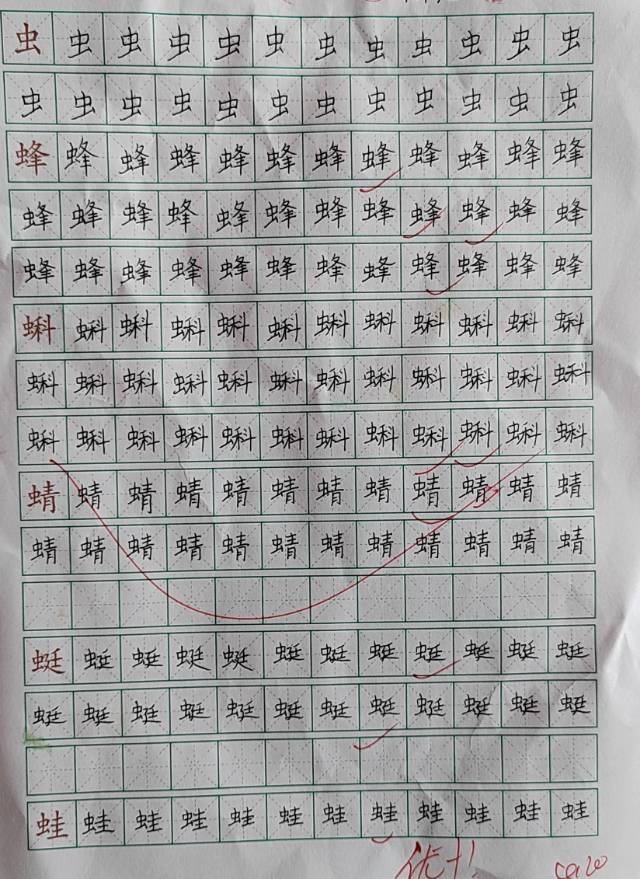 虫虫虫虫虫虫虫虫虫虫虫虫
虫虫虫虫虫虫虫虫虫虫虫虫
蜂蜂蜂蜂蜂蜂蜂蜂蜂蜂蜂蜂
蜂蜂蜂蜂蜂蜂蜂蜂蜂蜂蜂蜂
蜂蜂蜂蜂蜂蜂蜂蜂蜂蜂蜂蜂
蝌蝌蝌蝌蝌蝌蝌蝌蝌蝌蝌蝌
蝌蝌蝌蝌蝌蝌蝌蝌蝌蝌蝌蝌
蝌蝌蝌蝌蝌蝌蝌蝌蝌蝌蝌蝌
蜻蜻蜻蜻蜻蜻蜻蜻蜻蜻蜻蜻
蜻蜻蜻蜻蜻蜻蜻蜻蜻蜻蜻蜻
蜓蜓蜓蜓蜓蜓蜓蜓蜓蜓蜓蜓
蜓蜓蜓蜓蜓蜓蜓蜓蜓蜓蜓蜓
蛙蛙蛙蛙蛙蛙蛙蛙蛙蛙蛙蛙
优+!